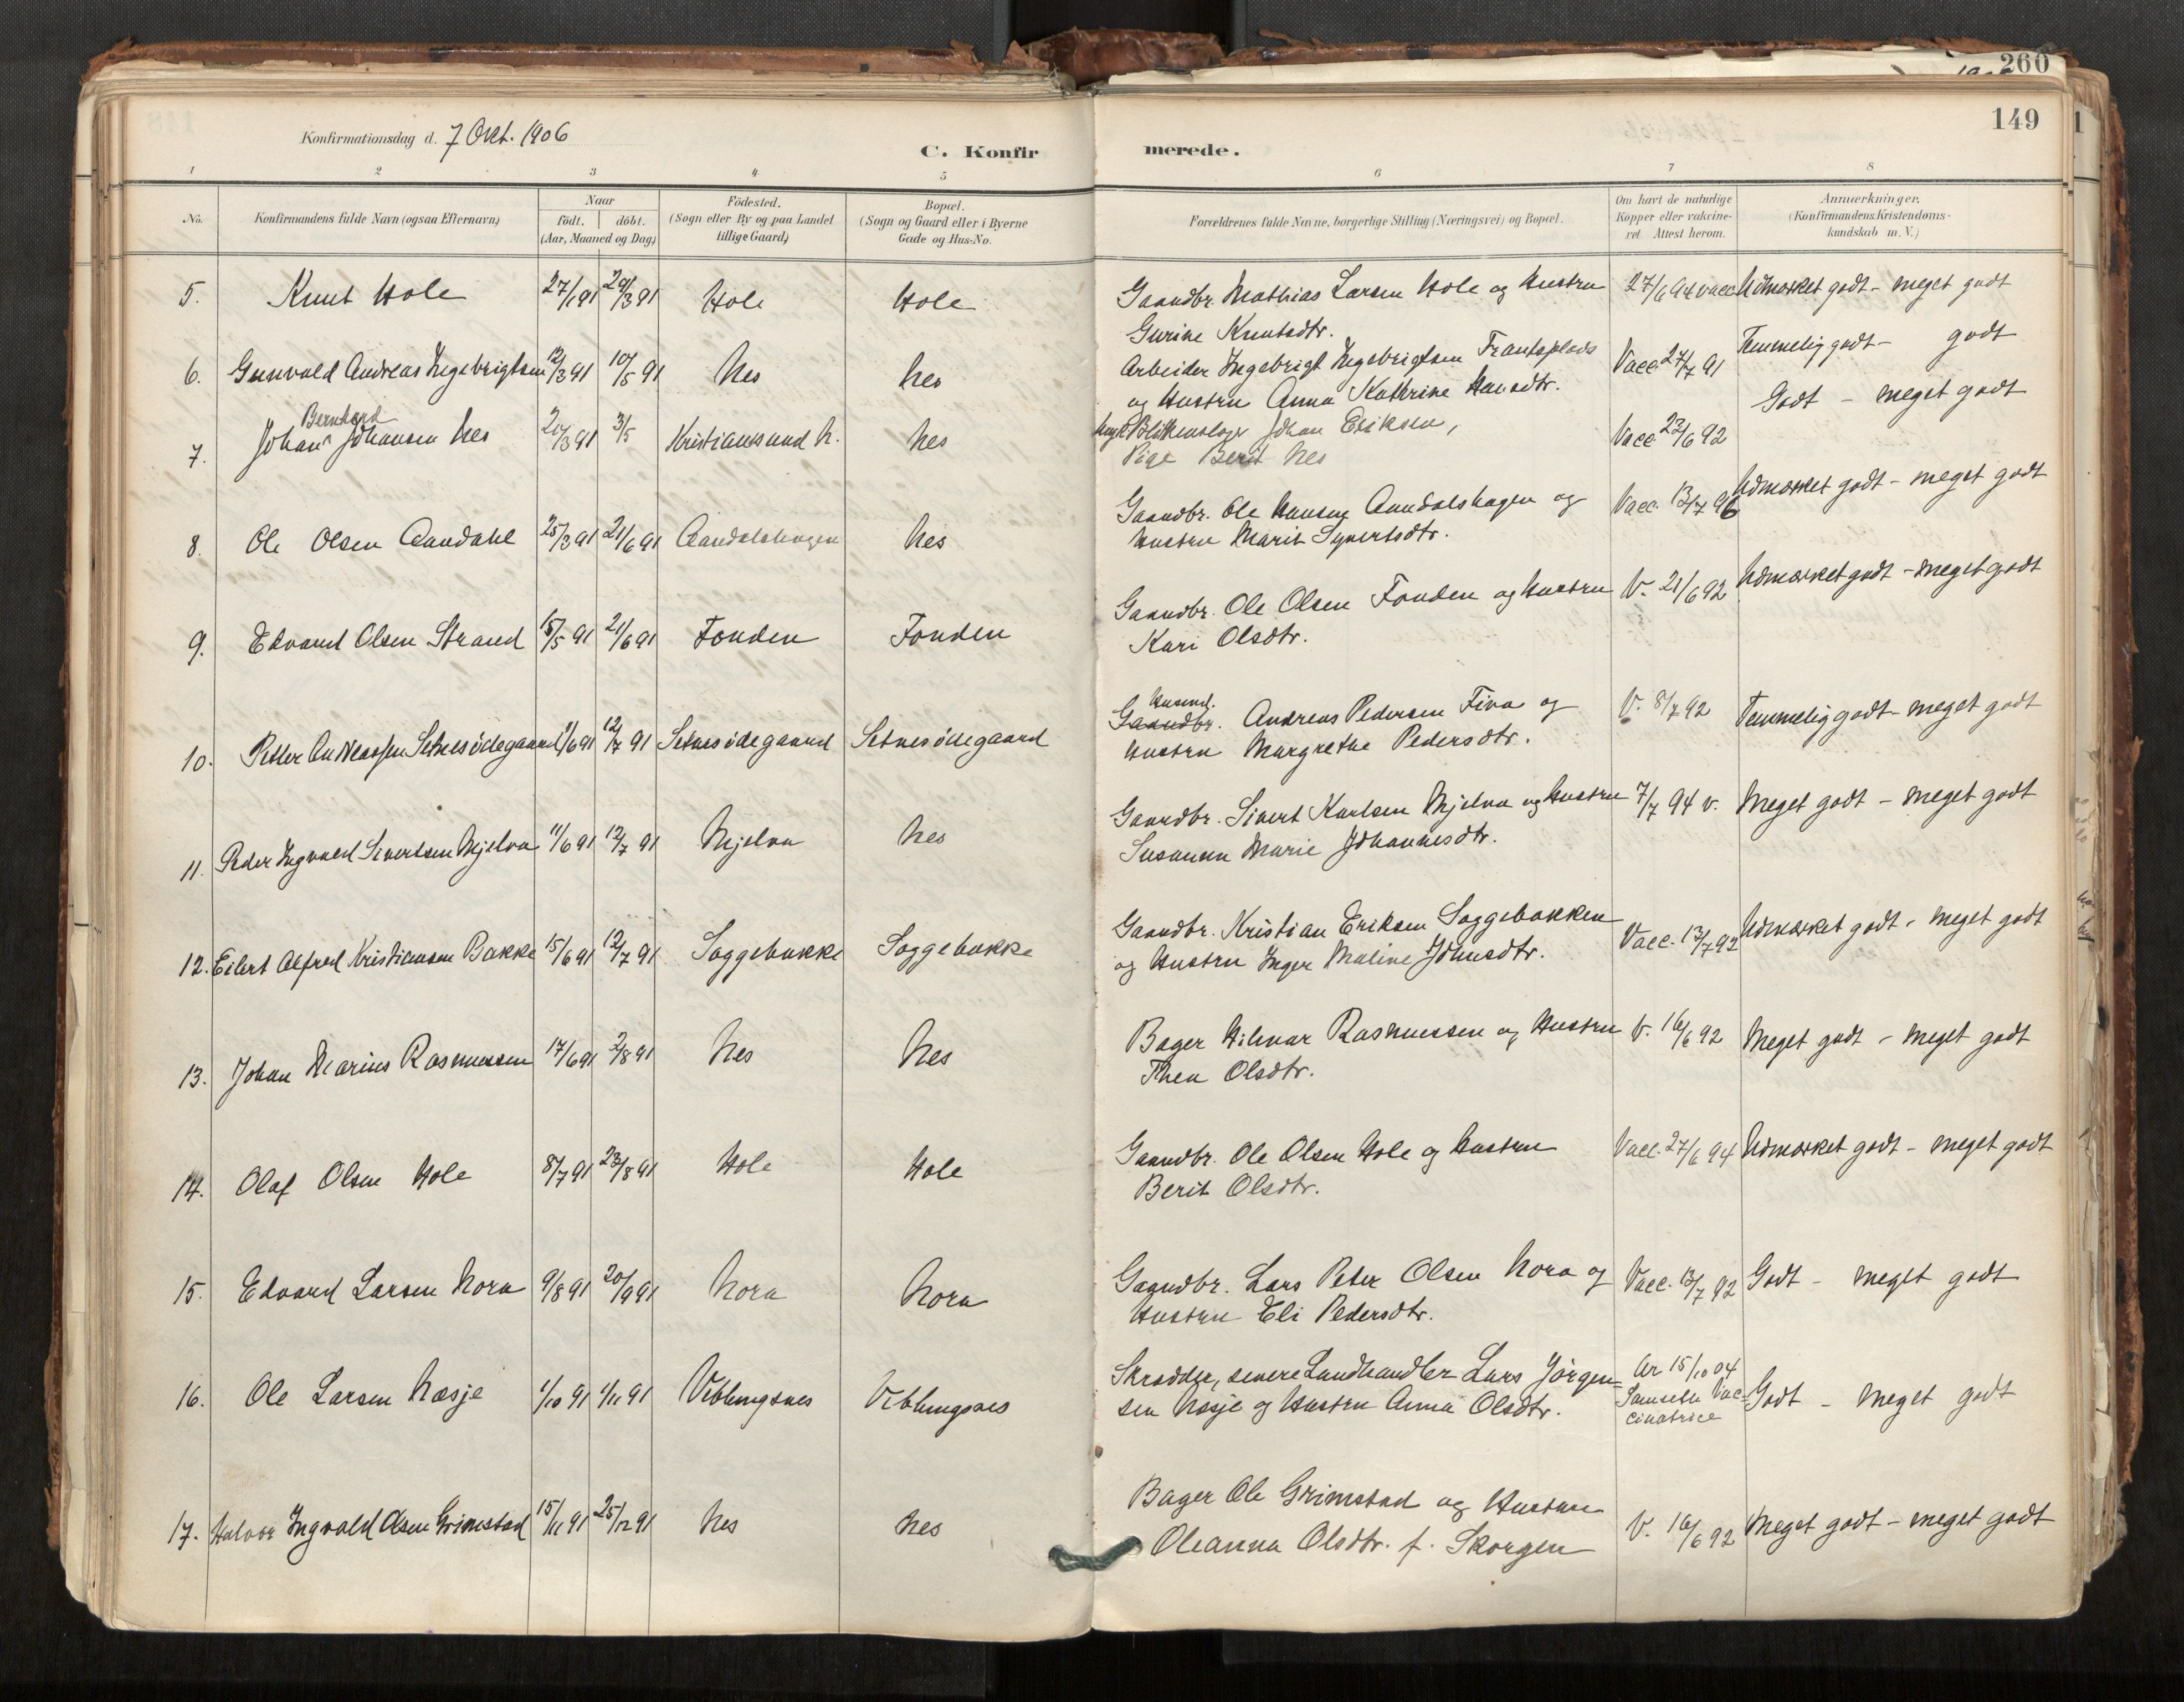 260
149
Konfirmationsdag d. 7 Okt. 1906
C. Konfirmerede.
1 2 3 4 5 6 7 8
No. Konfirmandens fulde Navn (ogsaa Efternavn) Naar födt. döbt. (Aar, Maaned og Dag) Födested. (Sogn eller By og paa Landet tillige Gaard) Bopæl. (Sogn og Gaard eller i Byerne Gade og Hus-No. Forældrenes fulde Navne, borgerlige Stilling (Næringsvei) og Bopæl. Om havt de naturlige Kopper eller vakcineret Attest herom. Anmærkninger. (Konfirmandens Kristendomskundskab m. V.)
5. Knut Hole 27/1 91 29/3 91 Hole Hole Gaardbr. Mathias Larsen Hole og Hustru 27/6 94 vacc Udmærket godt - meget godt
Gurine Knutsdtr.
6. Gunvald Andreas Ingebrigtsen 12/3 91 10/5 91 Nes Nes Arbeider Ingebrigt Ingebrigtsen Frantsplads Vacc 27/7 91 Temmelig godt - godt
og Hustru Anna Kathrine Hansdtr.
7. Johan Bernhard Johansen Nes 20/3 91 3/5 Kristianssund N. Nes Blikkenslager Johan Eriksen, Vacc 23/6 92 Godt - meget godt
Pige Berit Nes
8. Ole Olsen Aandahl 25/3 91 21/6 91 Aandalshagen Nes Gaardbr. Ole Hansen Aandalshagen og Vacc. 13/7 96 Udmærket godt - meget godt
Hustru Marit Syvertsdtr.
9. Edvard Olsen Strand 15/5 91 21/6 91 Fonden Fonden Gaardbr. Ole Olsen Fonden og Hustru V. 21/6 92 Udmærket godt - meget godt
Kari Olsdtr.
10. Petter Andreassen Setnesödegaard 1/6 91 12/7 91 Setnesödegaard Setnesödegaard Gaardbr. Husmd. Andreas Pedersen Fiva og V. 8/7 92 Temmelig godt - meget godt
Hustru Margrethe Pedersdtr.
11. Peder Ingvald Sivertsen Mjelva 11/6 91 12/7 91 Mjelva Nes Gaardbr. Sivert Karlsen Mjelva og Hustru 7/7 94 v. Meget godt - meget godt
Susanna Marie Johannesdtr.
12. Eilert Alfred Kristiansen Bakke 15/6 91 12/7 91 Soggebakke Soggebakke Gaardbr. Kristian Eriksen Soggebakken Vacc. 13/7 92 Udmærket godt - meget godt
og Hustru Inger Maline Johnsdtr.
13. Johan Marius Rasmussen 17/6 91 2/8 91 Nes Nes Bager Hilmar Rasmussen og Hustru V. 16/6 92 Meget godt - meget godt
Thea Olsdtr.
14. Olaf Olsen Hole 8/7 91 23/8 91 Hole Hole Gaardbr. Ole Olsen Hole og Hustru Vacc. 27/6 94 Udmærket godt - meget godt
Berit Olsdtr.
15. Edvard Larsen Nora 9/8 91 20/9 91 Nora Nora Gaardbr. Lars Peter Olsen Nora og Vacc. 13/7 92 Godt - meget godt
Hustru Eli Pedersdtr.
16. Ole Larsen Næsje 1/10 91 1/11 91 Veblungsnes Veblungsnes Skrædder, senere Landhandler Lars Jörgen- Ar 15/10 04
sen Næsje og Hustru Anna Olsdtr. Vac-cinatrice Godt - meget godt
17. Halvor Ingvald Olsen Grimstad 15/11 91 25/12 91 Nes Nes Bager Ole Grimstad og Hustru V. 16/6 92 Meget godt - meget godt
Oleanna Olsdtr. f. Skorgen